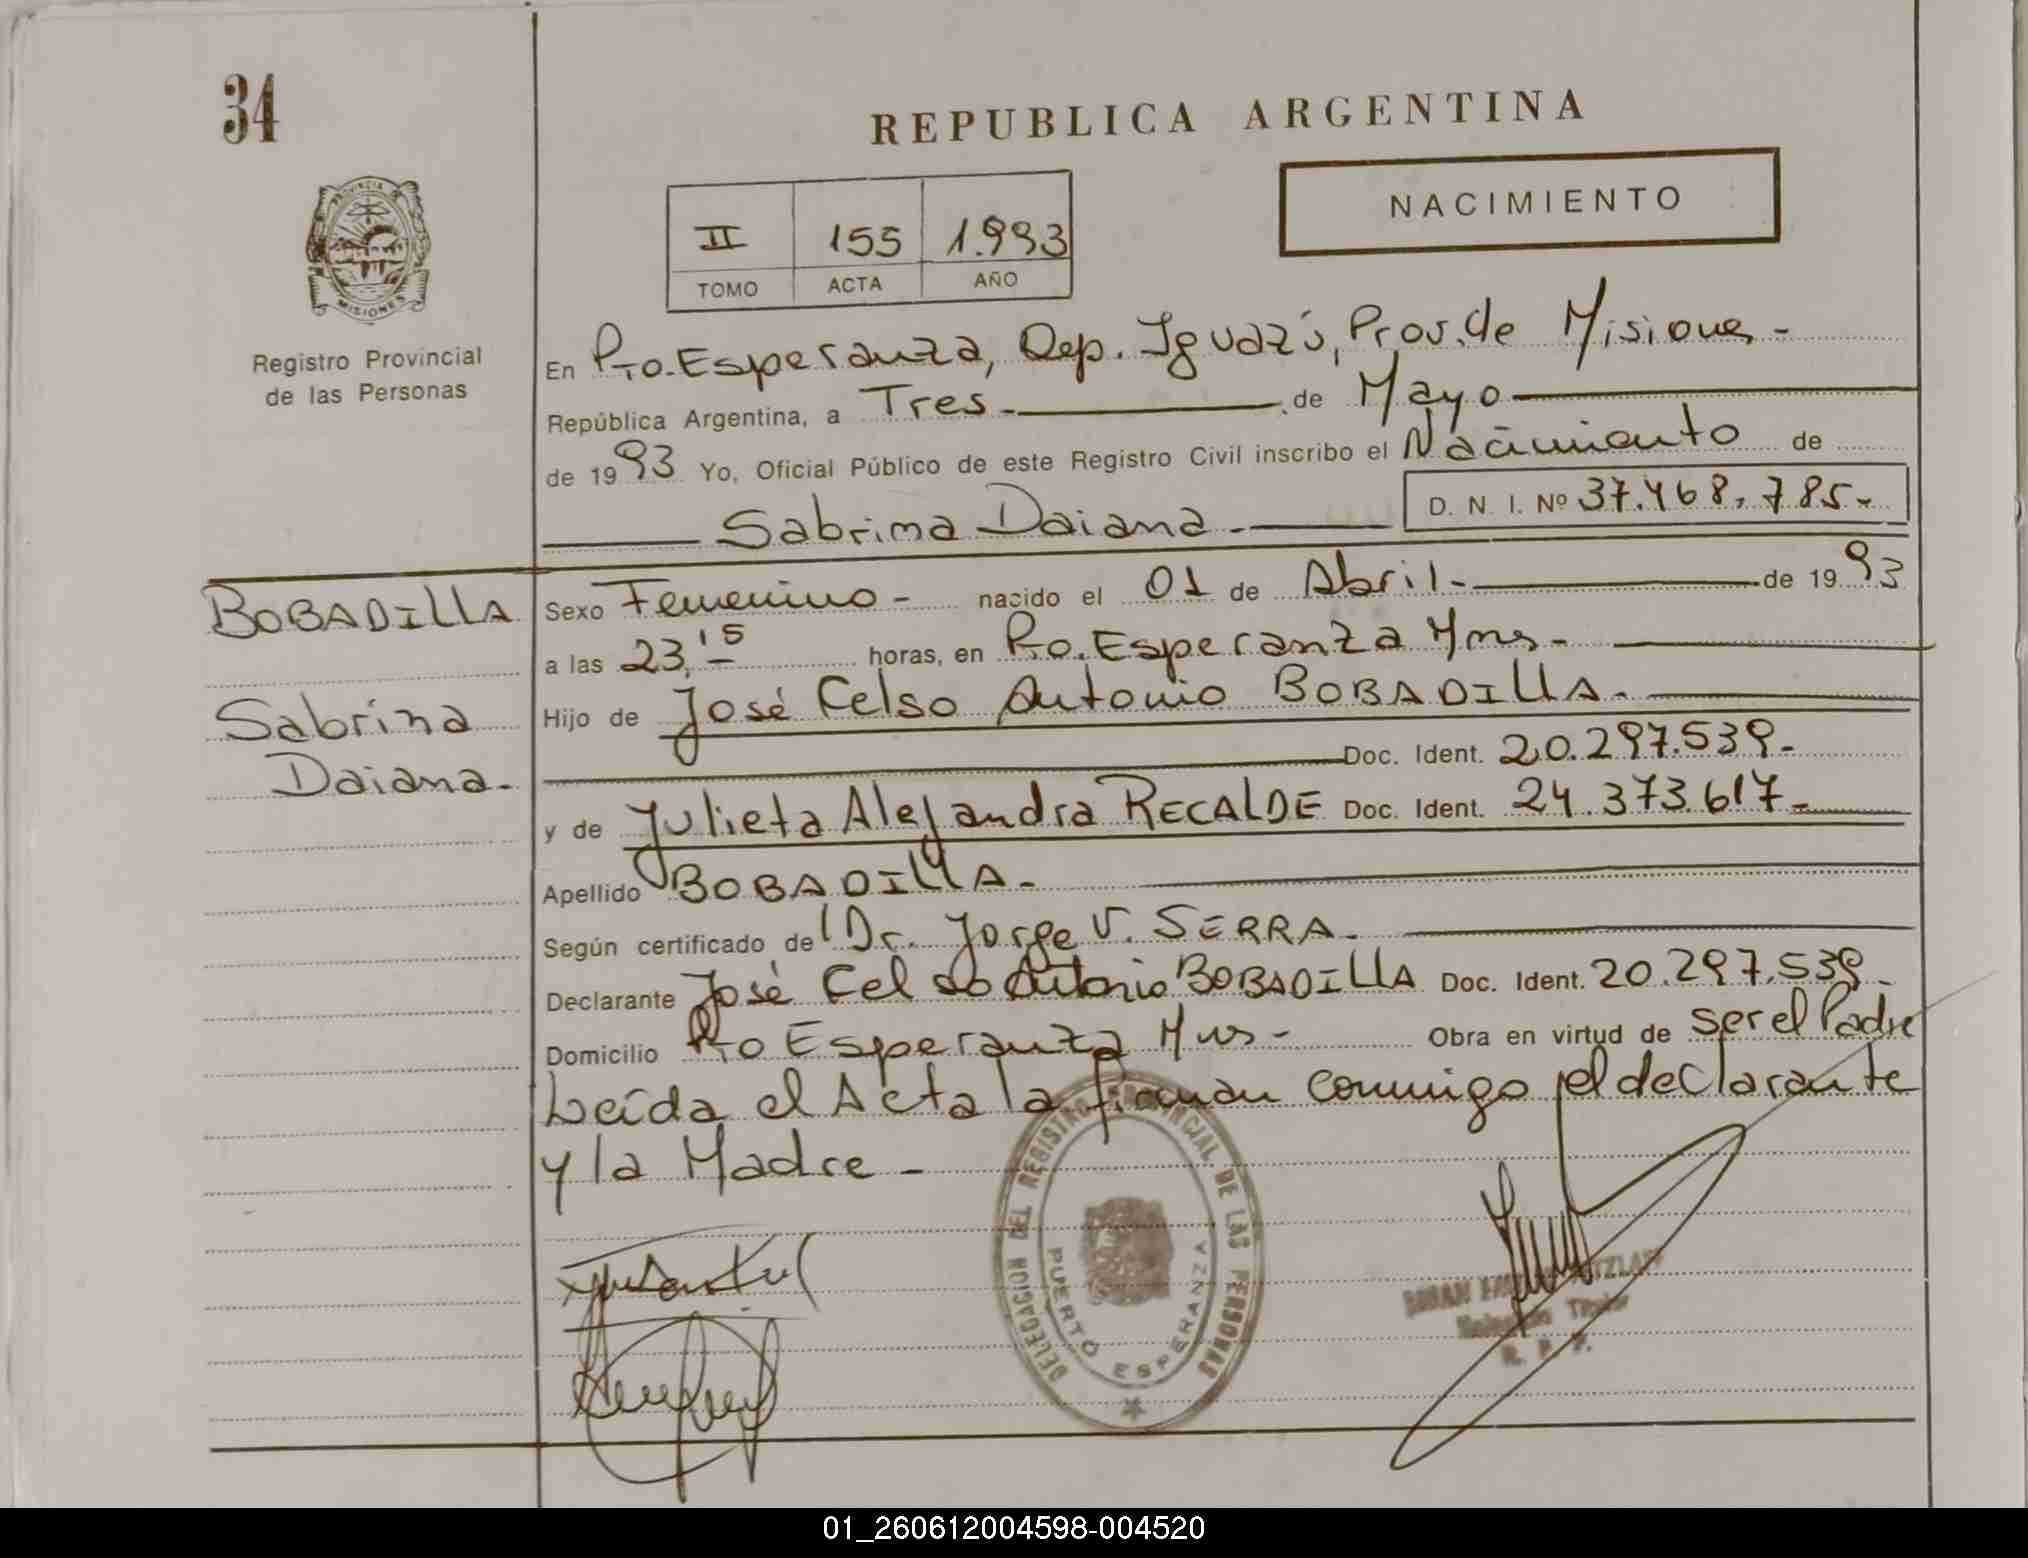 34
REPUBLICA ARGENTINA
NACIMIENTO
II 155 1.993
TOMO ACTA AÑO
PROVINCIA DE
MISIONES
Registro Provincial
de las Personas
En Pto. Esperanza, Dep. Iguazú, Prov. de Misiones -
República Argentina, a Tres. de Mayo
de 1993 Yo, Oficial Público de este Registro Civil inscribo el Nacimiento de
Sabrina Daiana. D. N. I. Nº 37.468.785.-
BOBADILLA
Sabrina
Daiana.
Sexo Femenino - nacido el 01 de Abril - de 1993
a las 23,15 horas, en Pto. Esperanza Mnes -
Hijo de José Celso Antonio BOBADILLA.
Doc. Ident. 20.297.539.-
y de Julieta Alejandra RECALDE Doc. Ident. 24.373.617.-
Apellido BOBADILLA.-
Según certificado del Dr. Jorge V. SERRA.
Declarante José Celso Antonio BOBADILLA Doc. Ident. 20.297.539.
Domicilio Pto Esperanza Mns - Obra en virtud de ser el Padre
Leída el Acta la firman conmigo el declarante
y la Madre -
DELEGACION DEL REGISTRO PROVINCIAL DE LAS PERSONAS
PUERTO ESPERANZA
Titular
R. P. P.
01_260612004598-004520